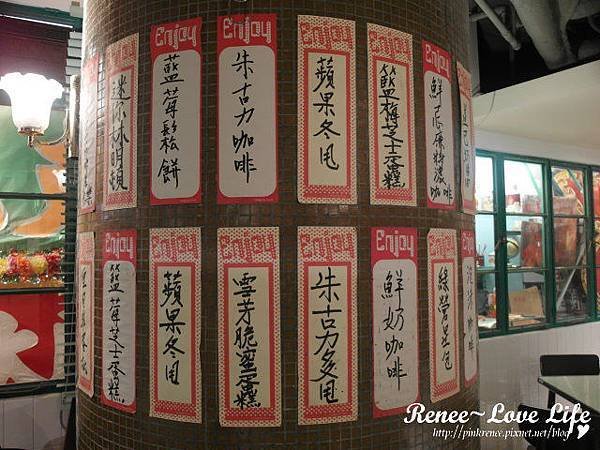 Enjoy
迷你林明頓
Enjoy
藍莓鬆餅
Enjoy
朱古力咖啡
Enjoy
蘋果冬甩
Enjoy
藍梅芝士蛋糕
Enjoy
咖啡
Enjoy
藍莓芝士蛋糕
Enjoy
蘋果冬甩
Enjoy
雪芽脆蜜蛋糕
Enjoy
朱古力冬甩
Enjoy
鮮奶咖啡
Enjoy
Enjoy
咖啡
Renee~Love Life
http://pinkrenee.pixnet.net/blog